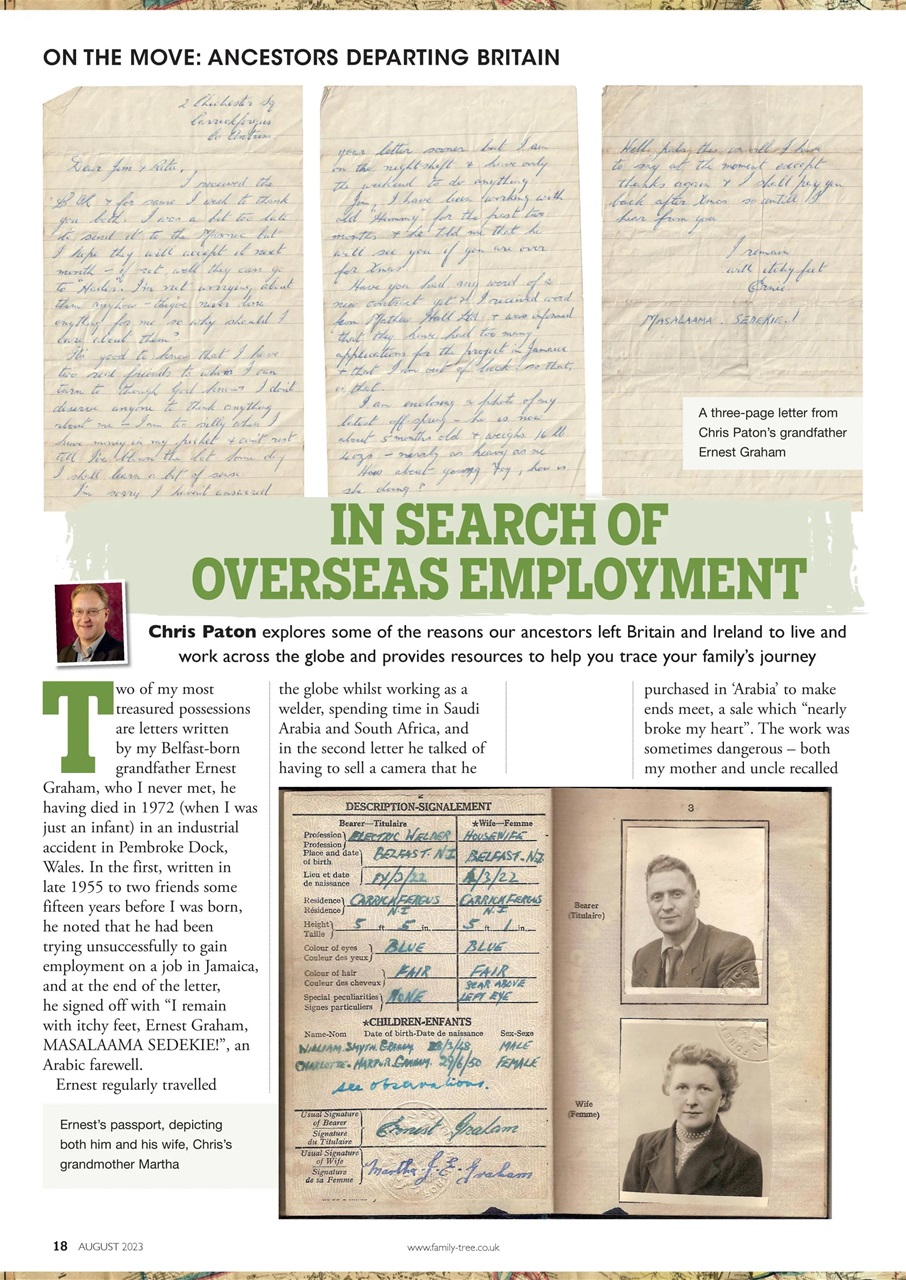 ON THE MOVE: ANCESTORS DEPARTING BRITAIN
2 Chichester Sq
Carrickfergus
Co Antrim
Dear Jim & Rita,
I received the
& for same I wish to thank
you both. I was a bit too late
to send it to the but
I hope they will accept it next
month – if not, well they can go
to "Hades". I'm not worrying about
them anyhow – they've never done
anything for me so why should I
care about them?
It's good to know that I have
two real friends to whom I can
turn to though God knows I don't
deserve anyone to think anything
about me – I am too silly when I
have money in my pocket & can't rest
till I've blown the lot. Some day
I shall learn a bit of sense
I'm sorry I haven't answered
your letter sooner but I am
on the nightshift & have only
the weekend to do anything.
Jim, I have been working with
old "Hammy" for the past two
months & he told me that he
will see you if you are over
for Xmas.
Have you had any word of a
new contract yet? I received word
from Mathew Hall Ltd & was informed
that they have had too many
applications for the project in Jamaica
& that I am out of luck, so that,
is that.
I am enclosing a photo of my
latest off-spring – he is now
about 5 months old & weighs 16 lb
4 ozs – nearly as heavy as me
How about young Joy, how is
she doing?
Well, folks, this is all I have
to say at the moment except
thanks again & I shall pay you
back after Xmas so until I
hear from you
I remain
with itchy feet
Ernie
MASALAAMA SEDEKIE!
A three-page letter from
Chris Paton's grandfather
Ernest Graham
IN SEARCH OF
OVERSEAS EMPLOYMENT
Chris Paton explores some of the reasons our ancestors left Britain and Ireland to live and
work across the globe and provides resources to help you trace your family's journey
Two of my most
treasured possessions
are letters written
by my Belfast-born
grandfather Ernest
Graham, who I never met, he
having died in 1972 (when I was
just an infant) in an industrial
accident in Pembroke Dock,
Wales. In the first, written in
late 1955 to two friends some
fifteen years before I was born,
he noted that he had been
trying unsuccessfully to gain
employment on a job in Jamaica,
and at the end of the letter,
he signed off with "I remain
with itchy feet, Ernest Graham,
MASALAAMA SEDEKIE!", an
Arabic farewell.
Ernest regularly travelled
the globe whilst working as a
welder, spending time in Saudi
Arabia and South Africa, and
in the second letter he talked of
having to sell a camera that he
purchased in 'Arabia' to make
ends meet, a sale which "nearly
broke my heart". The work was
sometimes dangerous – both
my mother and uncle recalled
2
DESCRIPTION-SIGNALEMENT
Bearer—Titulaire ★Wife—Femme
Profession ELECTRIC WELDER HOUSEWIFE
Profession
Place and date of birth BELFAST. N.I. BELFAST. N.I.
Lieu et date de naissance /3/22 /3/22
Residence CARRICKFERGUS CARRICKFERGUS
Résidence N.I. N.I.
Height 5 ft 5 in. 5 ft 1 in.
Taille
Colour of eyes BLUE BLUE
Couleur des yeux
Colour of hair FAIR FAIR
Couleur des cheveux
Special peculiarities NONE SCAR ABOVE LEFT EYE
Signes particuliers
★CHILDREN-ENFANTS
Name-Nom Date of birth-Date de naissance Sex-Sexe
WILLIAM SMYTH GRAHAM. 28/3/48 MALE
CHARLOTTE. HARPUR GRAHAM. 29/6/50 FEMALE
see observations.
Usual Signature of Bearer
Signature du Titulaire
Ernest Graham
Usual Signature of Wife
Signature de sa Femme
Martha J. E. Graham
3
Bearer
(Titulaire)
Wife
(Femme)
Ernest's passport, depicting
both him and his wife, Chris's
grandmother Martha
18 AUGUST 2023
www.family-tree.co.uk